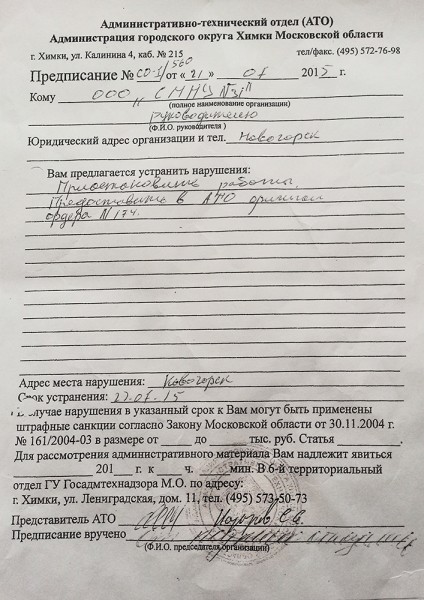 Административно-технический отдел (АТО)
Администрация городского округа Химки Московской области
г. Химки, ул. Калинина 4, каб. № 215 тел/факс. (495) 572-76-98
Предписание № СО-1/1560 от « 21 » 07 2015 г.
Кому ООО „СМНЦ №31"
(полное наименование организации)
руководителю
(Ф.И.О. руководителя )
Юридический адрес организации и тел. Новогорск
Вам предлагается устранить нарушения:
Приостановить работы.
Предоставить в АТО оригинал
ордера N 174.
Адрес места нарушения: Новогорск
Срок устранения: 27.07.15
случае нарушения в указанный срок к Вам могут быть применены
штрафные санкции согласно Закону Московской области от 30.11.2004 г.
№ 161/2004-03 в размере от ___ до ___ тыс. руб. Статья ________.
Для рассмотрения административного материала Вам надлежит явиться
________ 201__ г. к ___ ч. ___ мин. В 6-й территориальный
отдел ГУ Госадмтехнадзора М.О. по адресу:
г. Химки, ул. Лениградская, дом. 11, тел. (495) 573-50-73
Представитель АТО
Предписание вручено
(Ф.И.О. председателя организации)